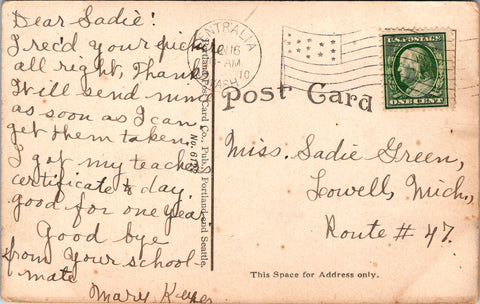 Dear Sadie!
I rec'd your picture
all right, Thanks
Will send mine
as soon as I can
get them taken.
I got my teachers
certificate to day,
good for one year
Good bye
from your school
mate
Mary
CENTRALIA
16
-AM
10
WASH.
Portland Post Card Co., Pub., Portland and Seattle.
No. 
U.S. POSTAGE
ONE CENT
Post Card
Miss. Sadie Green,
Lowell, Mich.,
Route # 47.
This Space for Address only.